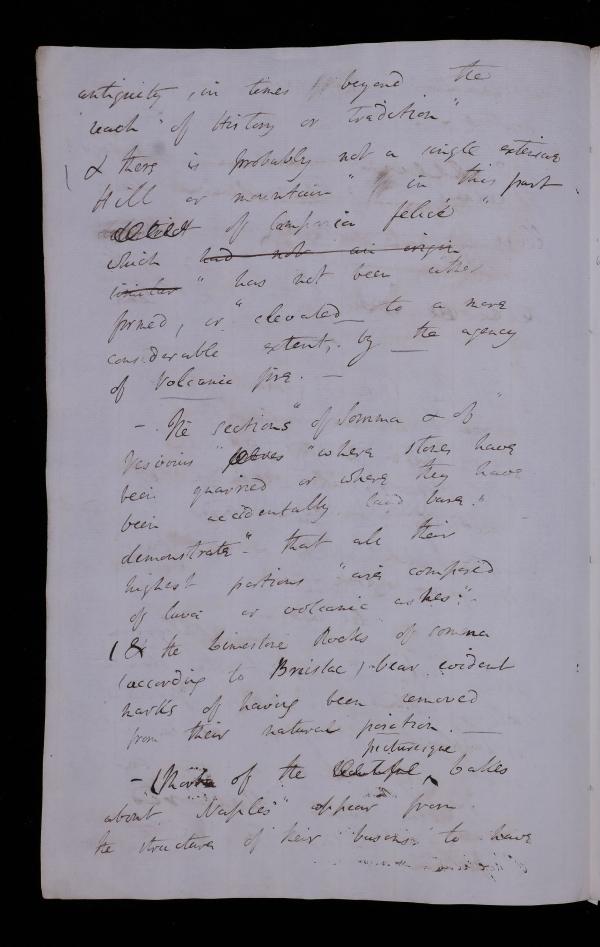 antiquity, in times beyond the
reach of History or tradition"
& there is probably not a single extensive
Hill or mountain" in this part
district of Campania felice"
which had not an origin
similar "has not been either
formed, or "elevated to a more
considerable extent, by the agency
of Volcanic fire. —
— The sections" of Somma & of
Vesuvius "where stones have
been quarried or where they have
been accidentally laid bare."
demonstrate" that all their
highest portions "are composed
of lava or volcanic ashes".
(& the Limestone Rocks of Somma
(according to Brieslac) bear evident
marks of having been removed
from their natural position. —
picturesque
— of the beautiful Lakes
about "Naples" appear from
the structure of their "basons" to have